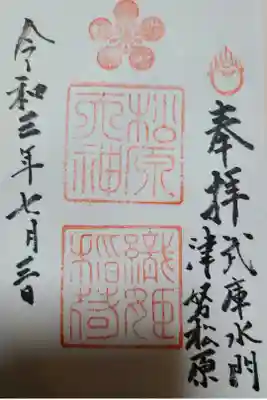 奉拝
武庫水門
津努松原
松原
天神
織姫
稲荷
令和三年七月三日